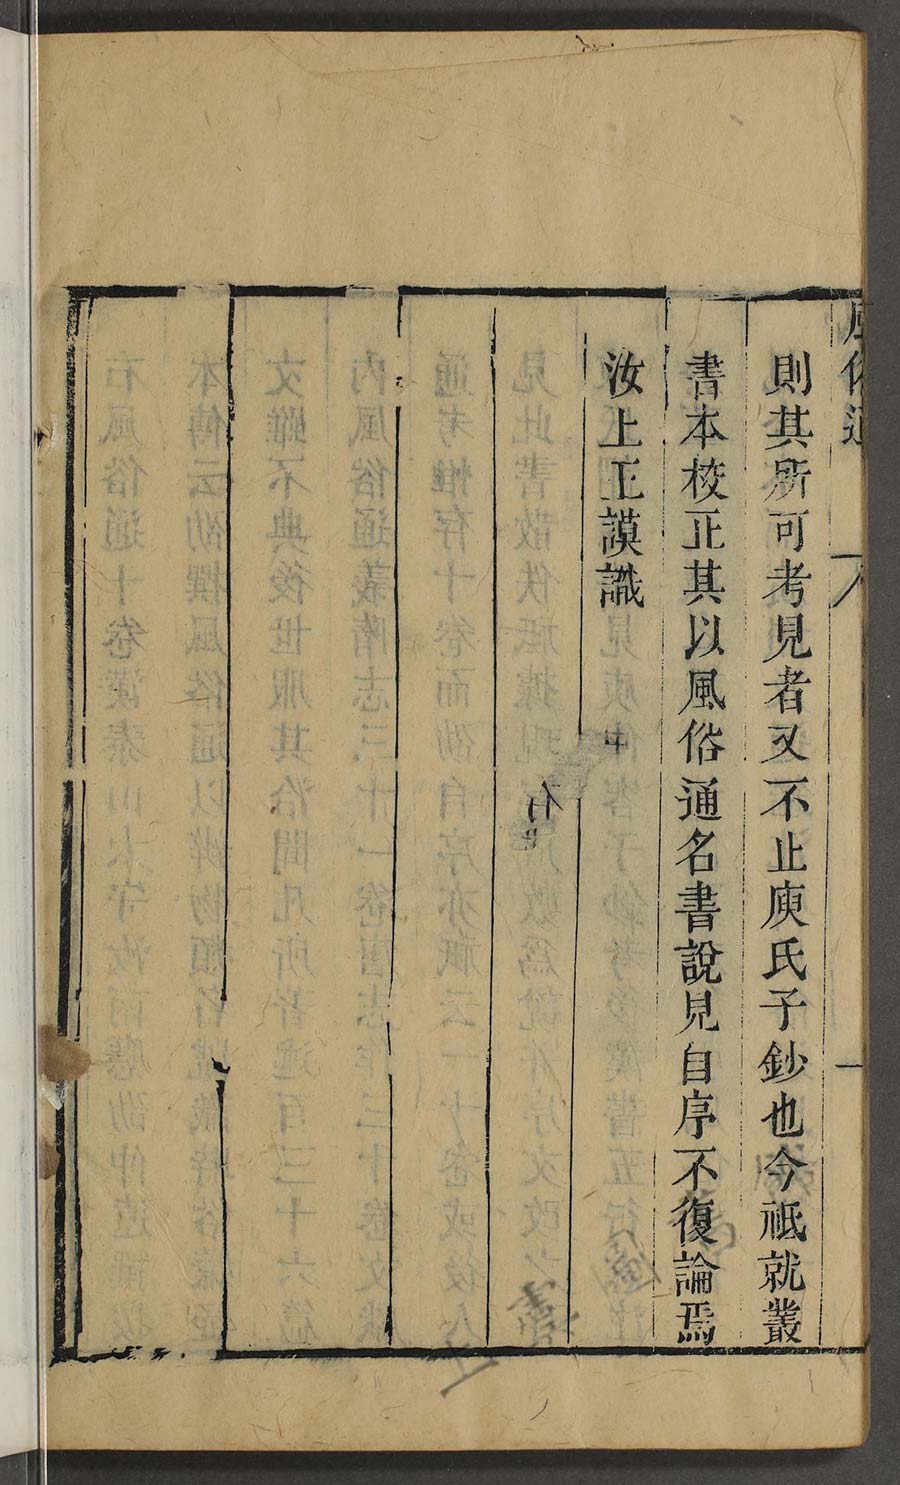 風俗通
一
則其所可考見者又不止庾氏子鈔也今祗就叢
書本校正其以風俗通名書說見自序不復論焉
汝上王謨識